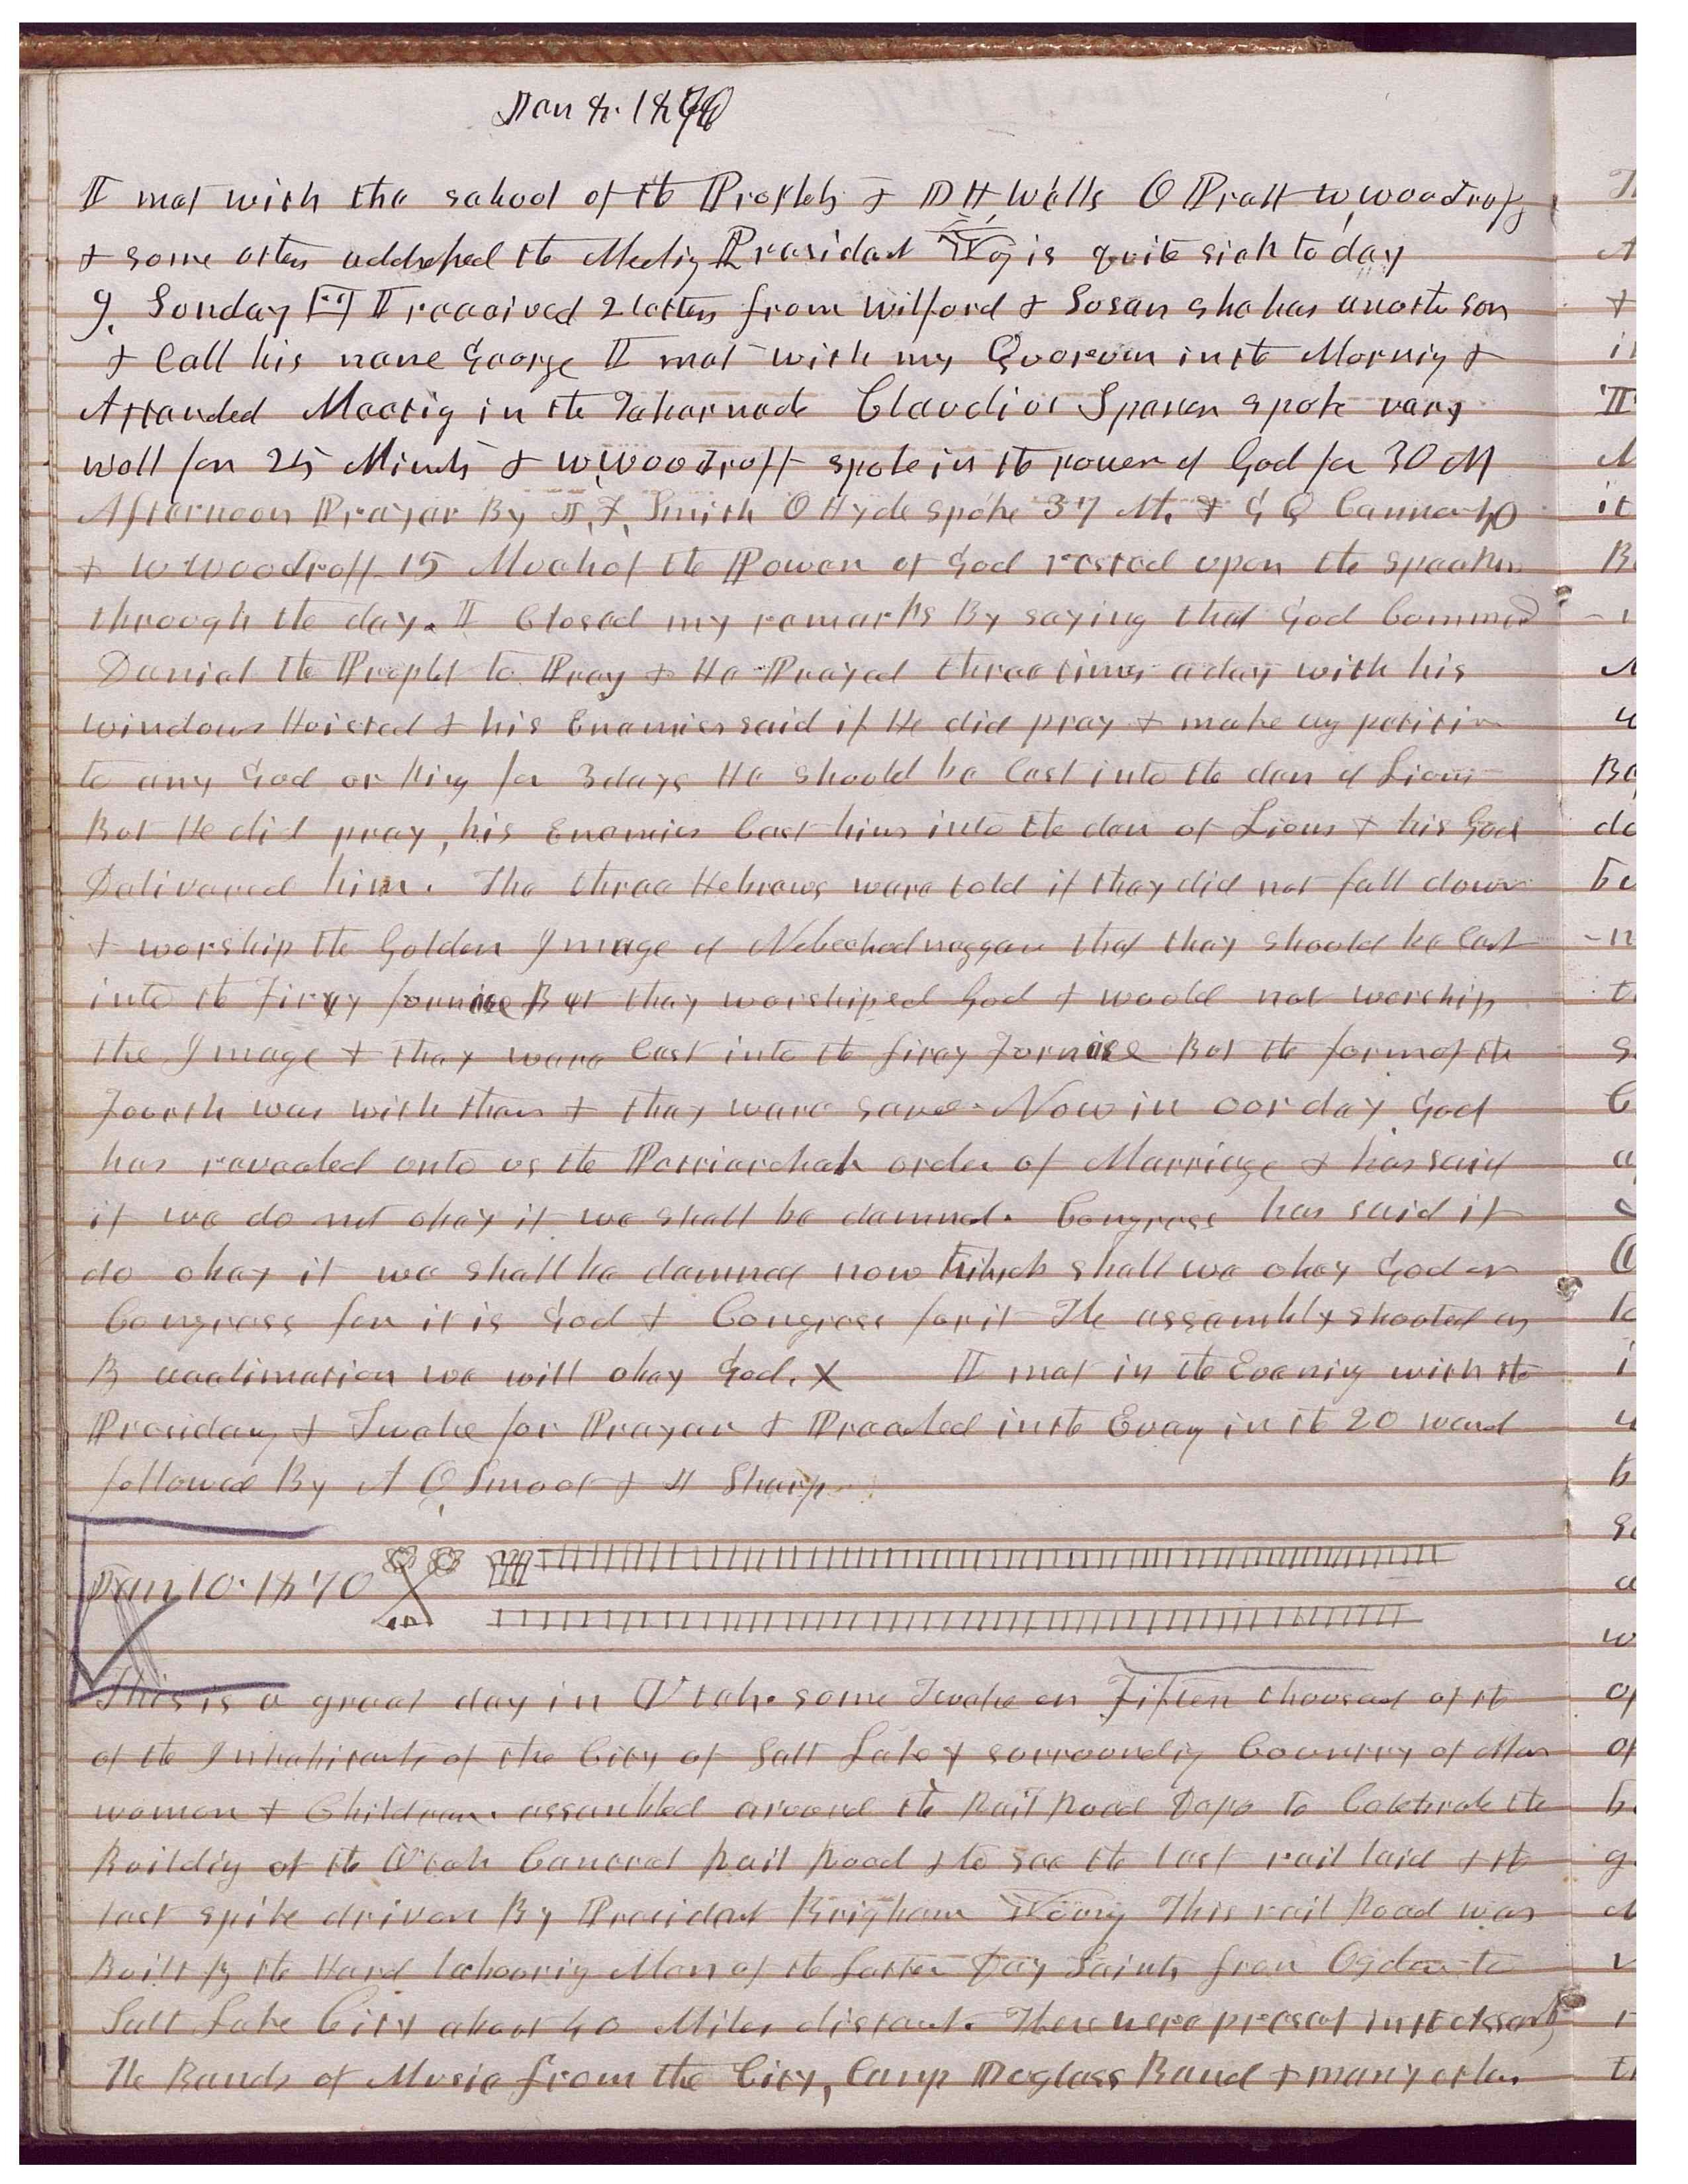 Jan 8. 1870
I met with the school of the Prophets & D H Wells O Pratt W Woodruff
& some others addressed the Meeting President Young is quite sick to day
9. Sunday I received 2 letters from Wilford & Susan she has another son
& Call his name George I met with my Quorum in the Morning &
Attended Meeting in the Tabernacle Claudius Spencer spoke very
well for 25 Minuts & W Woodruff spoke in the power of God for 30 M
Afternoon Prayer By J. F. Smith O Hyde spoke 37 M. & G Q Cannon 40
& W Woodruff 15 Much of the Power of God rested upon the speakers
through the day. I Closed my remarks By saying that God Commd
Daniel the Prophet to Pray & He Prayed three times a day with his
windows Hoisted & his Enemies said if He did pray & make any petition
to any God or King for 3 days He should be Cast into the den of Lions
But He did pray, his Enemies Cast him into the den of Lions & his God
Delivered him. The three Hebrews were told if they did not fall down
& worship the Golden Image of Nebechadnezzar that they should be Cast
into the firyy furnace But they worshiped God & would not worship
the Image & they were Cast into the firey Furnace But the form of the
Fourth was with them & they were saved. Now in our day God
has revealed unto us the Patriarchah order of Marriage & has said
if we do not obey it we shall be damned. Congress has said if
do obey it we shall be damned now which shall we obey God or
Congress for it is God & Congress for it The assembly shouted in
B acclimation we will obey God. X I met in the Evening with the
Presidency & Twelve for Prayer & Preached in the Eveng in the 20 ward
followed By A O Smoot & J Sharp
Jan 10. 1870
This is a great day in Utah. some Twelve or Fifteen thousand of the
of the Inhabitants of the City of Salt Lake & surrounding Country of Men
women & Children. assembled around the Rail Road Depo to Celebrate the
Building of the Utah Central Rail Road & to see the last rail laid & the
last spike driven By President Brigham Young This rail Road was
Built by the Hard labouring Men of the Latter Day Saints from Ogden to
Salt Lake City about 40 Miles distant. There were present in the Assembly
The Bands of Music from the City, Camp Duglass Band & many others